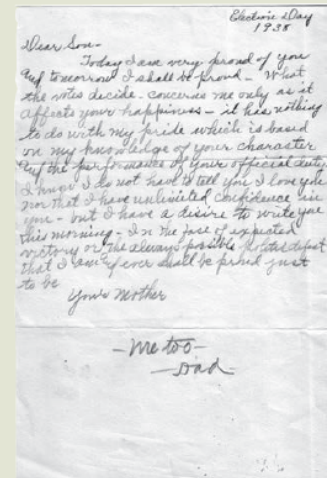 Election Day
1938
Dear Son -
Today I am very proud of you
and tomorrow I shall be proud - What
the votes decide - concerns me only as it
affects your happiness - it has nothing
to do with my pride which is based
on my knowledge of your character
and the performance of your official duty.
I know I do not have to tell you I love you
nor that I have unlimited confidence in
you - but I have a desire to write you
this morning - In the face of expected
victory or the always possible defeat
that I am & ever shall be proud just
to be
Your Mother
- Me too -
- Dad -